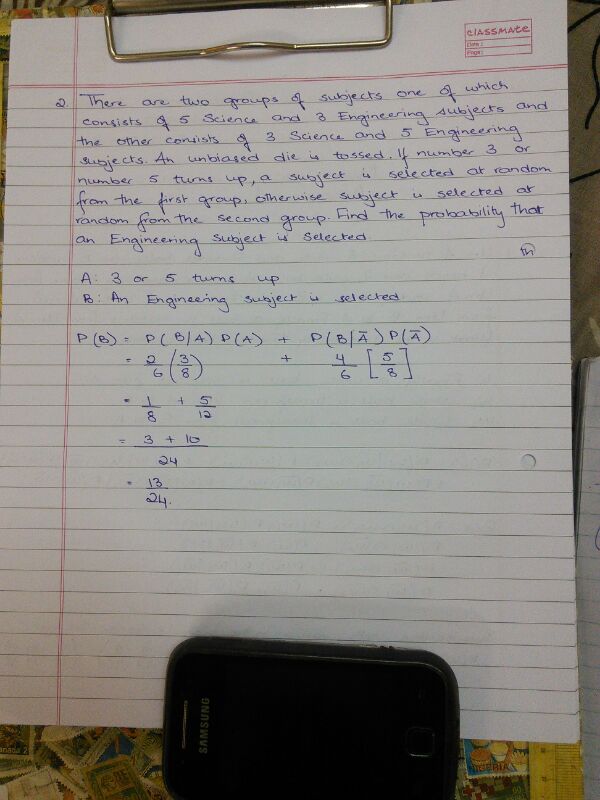 classmate
Date :
Page :
2. There are two groups of subjects one of which
consists of 5 Science and 3 Engineering subjects and
the other consists of 3 Science and 5 Engineering
subjects. An unbiased die is tossed. If number 3 or
number 5 turns up, a subject is selected at random
from the first group, otherwise subject is selected at
random from the second group. Find the probability that
an Engineering subject is selected.
A: 3 or 5 turns up
B: An Engineering subject is selected
P(B) = P(B/A) P(A) + P(B/Ā) P(Ā)
= 2/6 (3/8) + 4/6 [5/8]
= 1/8 + 5/12
= 3 + 10 / 24
= 13/24.
SAMSUNG
NIGERIA